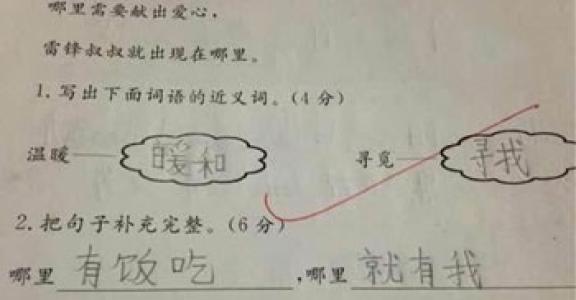 哪里需要献出爱心，
雷锋叔叔就出现在哪里。
1.写出下面词语的近义词。(4分)
温暖——暖和 寻觅——寻我
2.把句子补充完整。(6分)
哪里有饭吃，哪里就有我